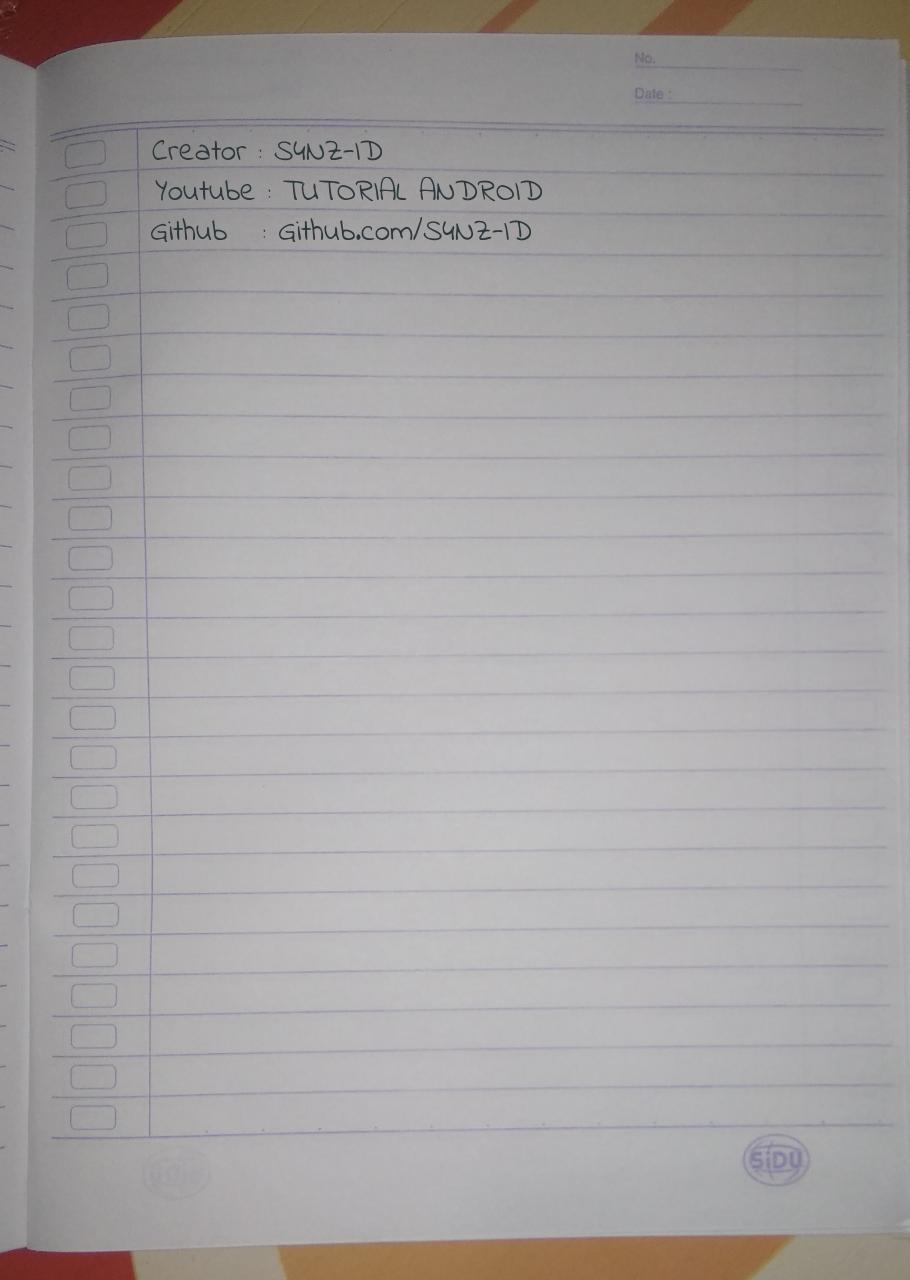 No.
Date :
Creator : S4NZ-ID
Youtube : TUTORIAL ANDROID
Github : Github.com/S4NZ-ID
SiDU